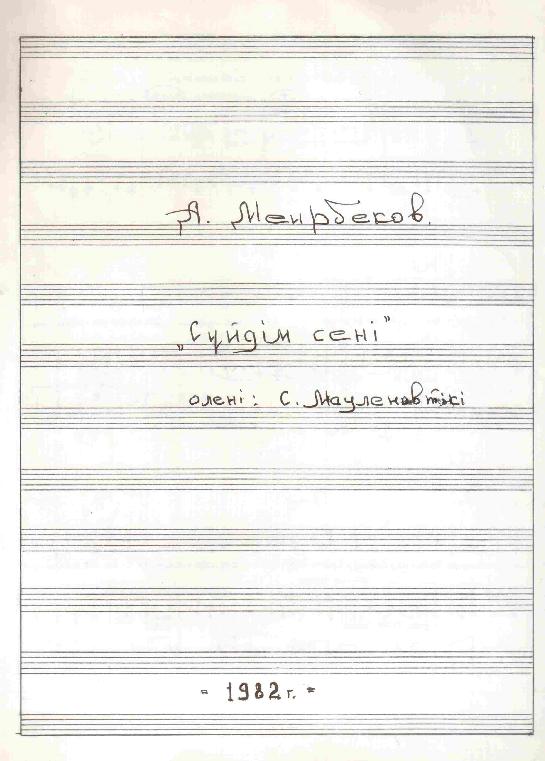 А. Меирбеков.
„Сүйдім сені"
олені: С. Мауленовтікі
- 1982 г. -